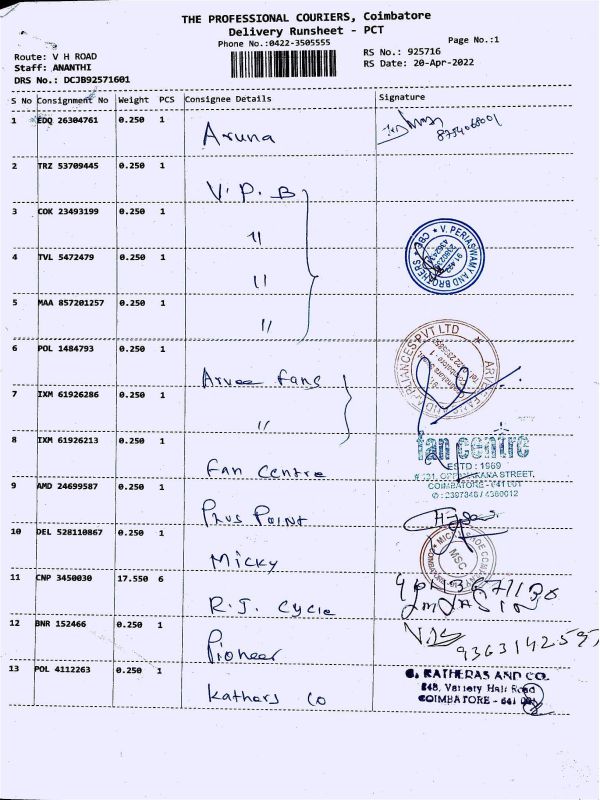 THE PROFESSIONAL COURIERS, Coimbatore
Delivery Runsheet - PCT
Phone No.:0422-3505555
Page No.:1
Route: V H ROAD
RS No.: 925716
Staff: ANANTHI
RS Date: 20-Apr-2022
DRS No.: DCJB92571601
S No Consignment No Weight PCS Consignee Details Signature
1 EDQ 26304761 0.250 1 Aruna
8754068001
2 TRZ 53709445 0.250 1 V. P. B
3 COK 23493199 0.250 1 "
V. PERIASWAMY AND BROTHERS * CBE *
4 TVL 5472479 0.250 1 "
5 MAA 857201257 0.250 1 "
6 POL 1484793 0.250 1 Arvee fans
7 IXM 61926286 0.250 1 "
8 IXM 61926213 0.250 1 Fan Centre
fan centre
ESTD : 1969
STREET,
COIMBATORE - 641 001
9 AMD 24699587 0.250 1 Plus Point
10 DEL 528110867 0.250 1 Micky
MSC
11 CNP 3450030 17.550 6 R. J. Cycle
12 BNR 152466 0.250 1 Pioneer
13 POL 4112263 0.250 1 Kathers Co
C. KATHERAS AND CO.
848, Variety Hall Road
COIMBATORE - 641 001